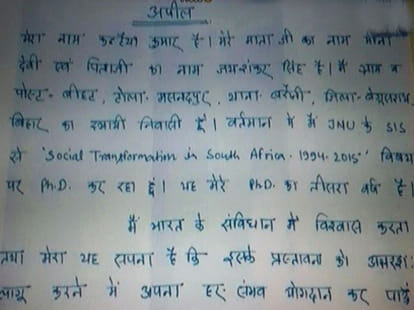 अपील
मेरा नाम कन्हैया कुमार है। मेरे माता जी का नाम मीना
देवी एवं पिताजी का नाम जयशंकर सिंह है। मैं ग्राम व
पोस्ट- बीहट, टोला- मसनदपुर, थाना- बरौनी, जिला- बेगूसराय
बिहार का स्थायी निवासी हूँ। वर्तमान में मैं JNU के SIS
से 'Social Transformation in South Africa- 1994-2015" विषय
पर Ph.D. कर रहा हूं। यह मेरे Ph.D. का तीसरा वर्ष है
मैं भारत के संविधान में विश्वास करता
तथा मेरा यह सपना है कि इसके प्रस्तावना को अक्षरश:
लागू करने में अपना हर- संभव योगदान कर पाऊं